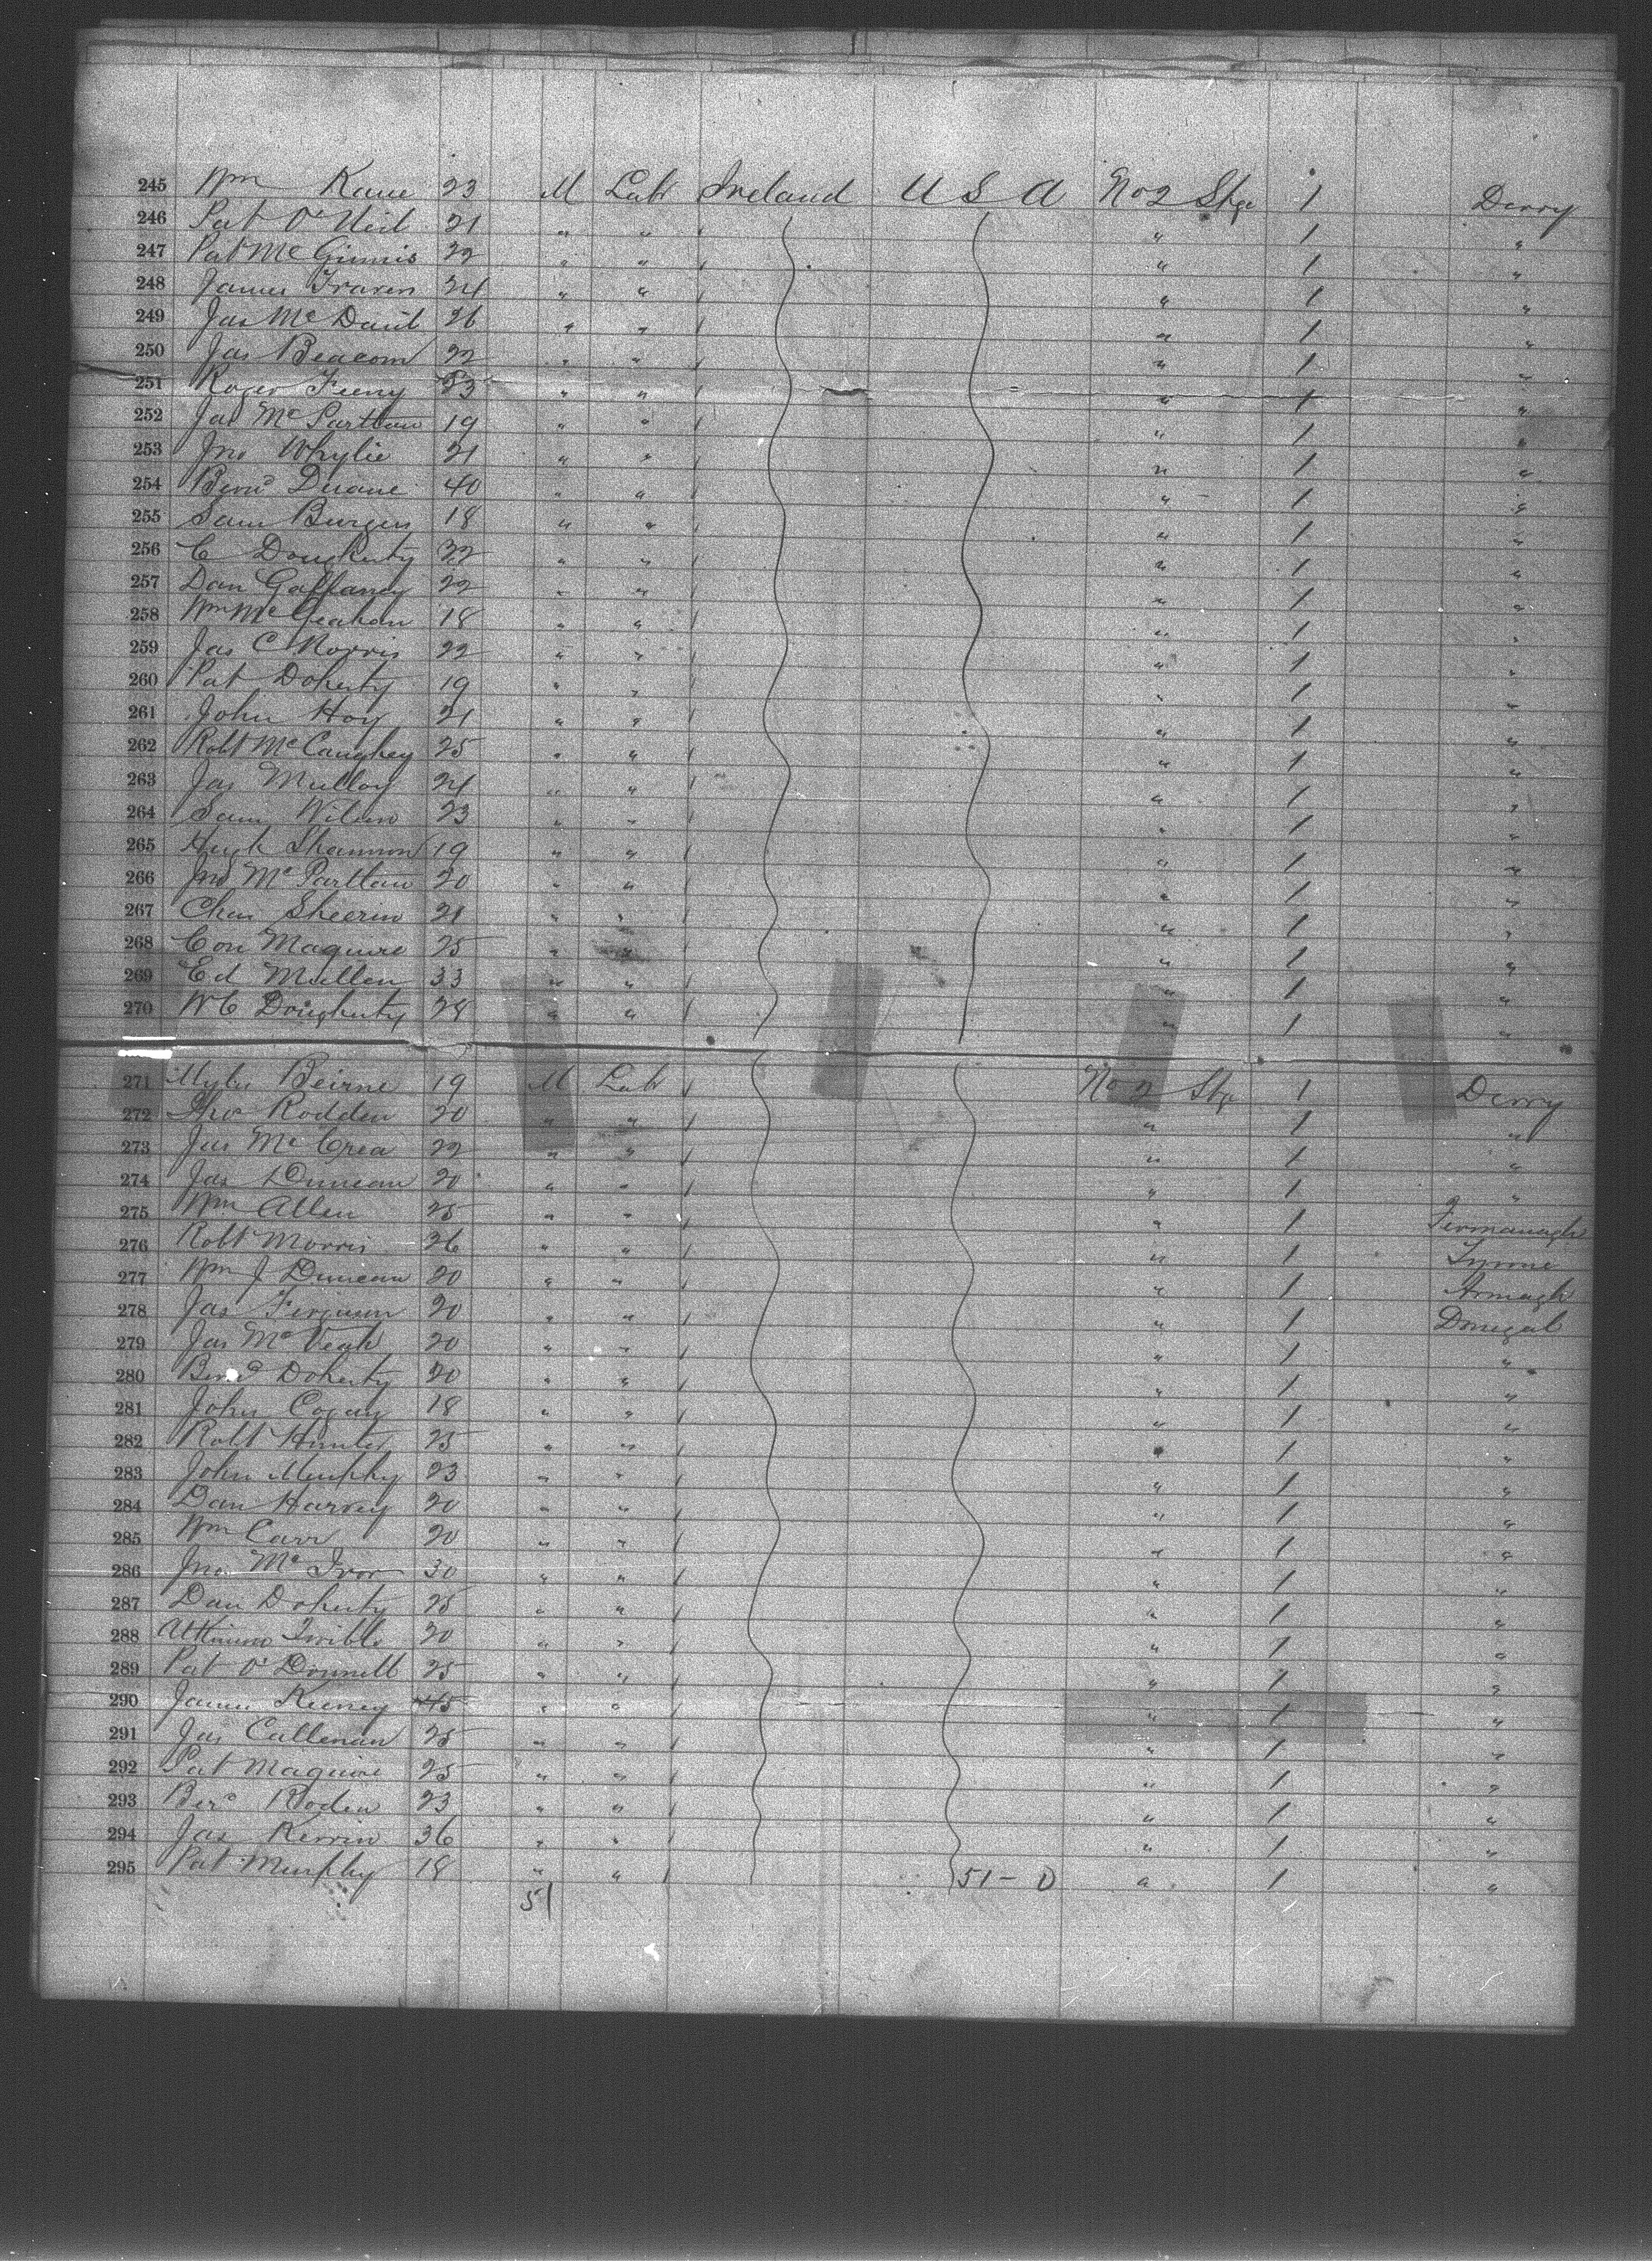 245 Wm Kane 23 M Lab Ireland U S A No 2 Stge 1 Derry
246 Pat O'Neil 21 " " " 1 "
247 Pat McGinnis 22 " " " 1 "
248 James Fraren 24 " " " 1 "
249 Jas McDaid 26 " " " 1 "
250 Jas Beacom 22 " " " 1 "
251 Roger Feeny 23 " " " 1 "
252 Jas McPartlan 19 " " " 1 "
253 Jno Whylie 21 " " " 1 "
254 Bernd Duane 40 " " " 1 "
255 Sam Burgen 18 " " " 1 "
256 C Dougherty 32 " " " 1 "
257 Dan Gallaney 22 " " " 1 "
258 Wm McGeahan 18 " " " 1 "
259 Jas C Norris 22 " " " 1 "
260 Pat Doherty 19 " " " 1 "
261 John Hoy 21 " " " 1 "
262 Robt McCaughey 25 " " " 1 "
263 Jas Mulloy 24 " " " 1 "
264 Sam Wilson 23 " " " 1 "
265 Hugh Shannon 19 " " " 1 "
266 Jno McPartlan 20 " " " 1 "
267 Chas Sheerin 21 " " " 1 "
268 Con Maguire 25 " " " 1 "
269 Ed Mullen 33 " " " 1 "
270 W C Dougherty 28 " " " 1 "
271 Myles Beirne 19 M Lab No 2 Stge 1 Derry
272 Thos Rodden 20 " " " 1 "
273 Jas McCrea 22 " " " 1 "
274 Jas Duncan 20 " " " 1 "
275 Wm Allen 25 " " " 1 Fermanagh
276 Robt Morris 26 " " " 1 Tyrone
277 Wm J Duncan 20 " " " 1 Armagh
278 Jas Ferguson 20 " " " 1 Donegal
279 Jas McVeah 20 " " " 1 "
280 Bernd Doherty 20 " " " 1 "
281 John Cogan 18 " " " 1 "
282 Robt Hunter 25 " " " 1 "
283 John Murphy 23 " " " 1 "
284 Dan Harvey 20 " " " 1 "
285 Wm Carr 20 " " " 1 "
286 Jno McIvor 30 " " " 1 "
287 Dan Doherty 25 " " " 1 "
288 20 " " " 1 "
289 Pat O'Donnell 25 " " " 1 "
290 James Keeney 45 " " " 1 "
291 Jas Cullenan 25 " " " 1 "
292 Pat Maguire 25 " " " 1 "
293 Bern Roden 23 " " " 1 "
294 Jas Kerrin 36 " " " 1 "
295 Pat Murphy 18 " " 51 - 0 " 1 "
51